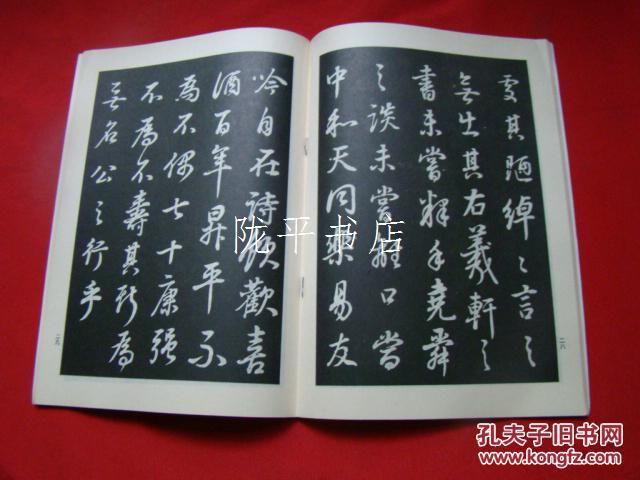 處其陋綽〻言之
無出其右羲軒之
書未嘗釋手堯舜
之談未嘗離口當
中和天同樂易友
二八
吟自在詩飲歡喜
酒百年昇平不
為不偶七十康强
不為不壽其斯為
無名公之行乎
二九
陇平书店
孔夫子旧书网
www.kongfz.com